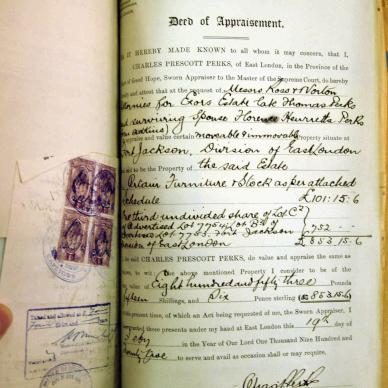 Deed of Appraisement.
IT HEREBY MADE KNOWN to all whom it may concern, that I,
CHARLES PRESCOTT PERKS, of East London, in the Province of the
of Good Hope, Sworn Appraiser to the Master of the Supreme Court, do hereby
and attest that at the request of Messrs Ross & Norton
Attornies for Exors Estate Late Thomas Perks
and surviving Spouse Florence Henrietta Perks
appraise and value certain moveable & immovable Property situate at
Fort Jackson, Division of East London
said to be the Property of the said Estate
Certain Furniture & Stock as per attached
Schedule £101:15:6
One third undivided share of Lot C
of Advertised Lot 7754
7753 Fort Jackson 752
Division of East London £853.15.6
said CHARLES PRESCOTT PERKS, do value and appraise the same as
to wit: the above mentioned Property I consider to be of the
value of Eight hundred and fifty three Pounds
fifteen Shillings, and Six Pence sterling (£853.15.6)
of the present time, of which an Act being requested of me, the Sworn Appraiser, I
granted these presents under my hand at East London this 19th day of
Feby in the Year of Our Lord One Thousand Nine Hundred and
to serve and avail as occasion shall or may require.